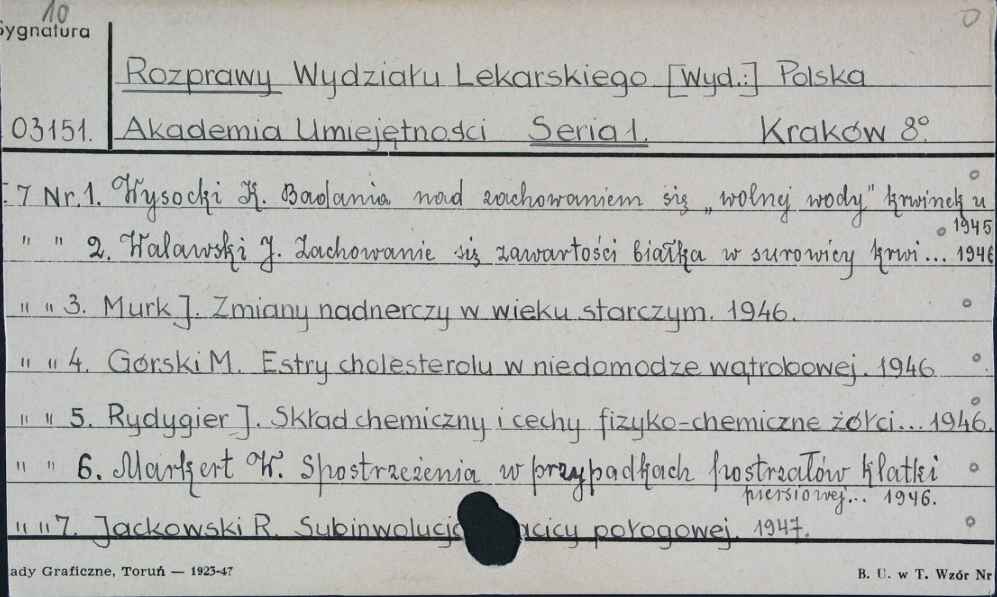 10
Sygnatura
Rozprawy Wydziału Lekarskiego [Wyd.:] Polska
03151. Akademia Umiejętności Seria 1. Kraków 8°
7 Nr. 1. Wysocki K. Badania nad zachowaniem się „wolnej wody" krwinek u
1945
" " 2. Walawski J. Zachowanie się zawartości białka w surowicy krwi... 1946
" " 3. Murk J. Zmiany nadnerczy w wieku starczym. 1946.
" " 4. Górski M. Estry cholesterolu w niedomodze wątrobowej. 1946
" " 5. Rydygier J. Skład chemiczny i cechy fizyko-chemiczne żółci... 1946.
" " 6. Markert W. Spostrzeżenia w przypadkach postrzałów klatki
piersiowej... 1946.
" " 7. Jackowski R. Subinwolucja macicy połogowej. 1947.
ady Graficzne, Toruń — 1923-47
B. U. w T. Wzór Nr